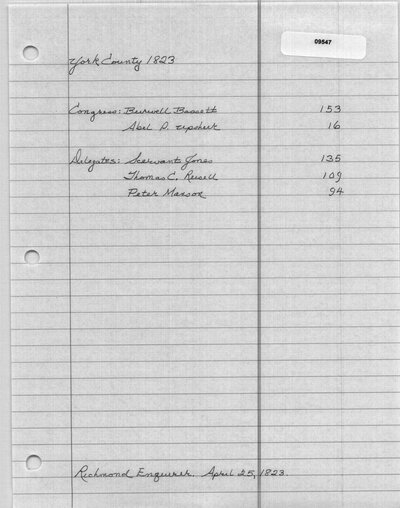 09547
York County 1823
Congress: Burwell Bassett 153
Abel P. Upshur 16
Delegates: Scervant Jones 135
Thomas C. Russell 109
Peter Manson 94
Richmond Enquirer. April 25, 1823.